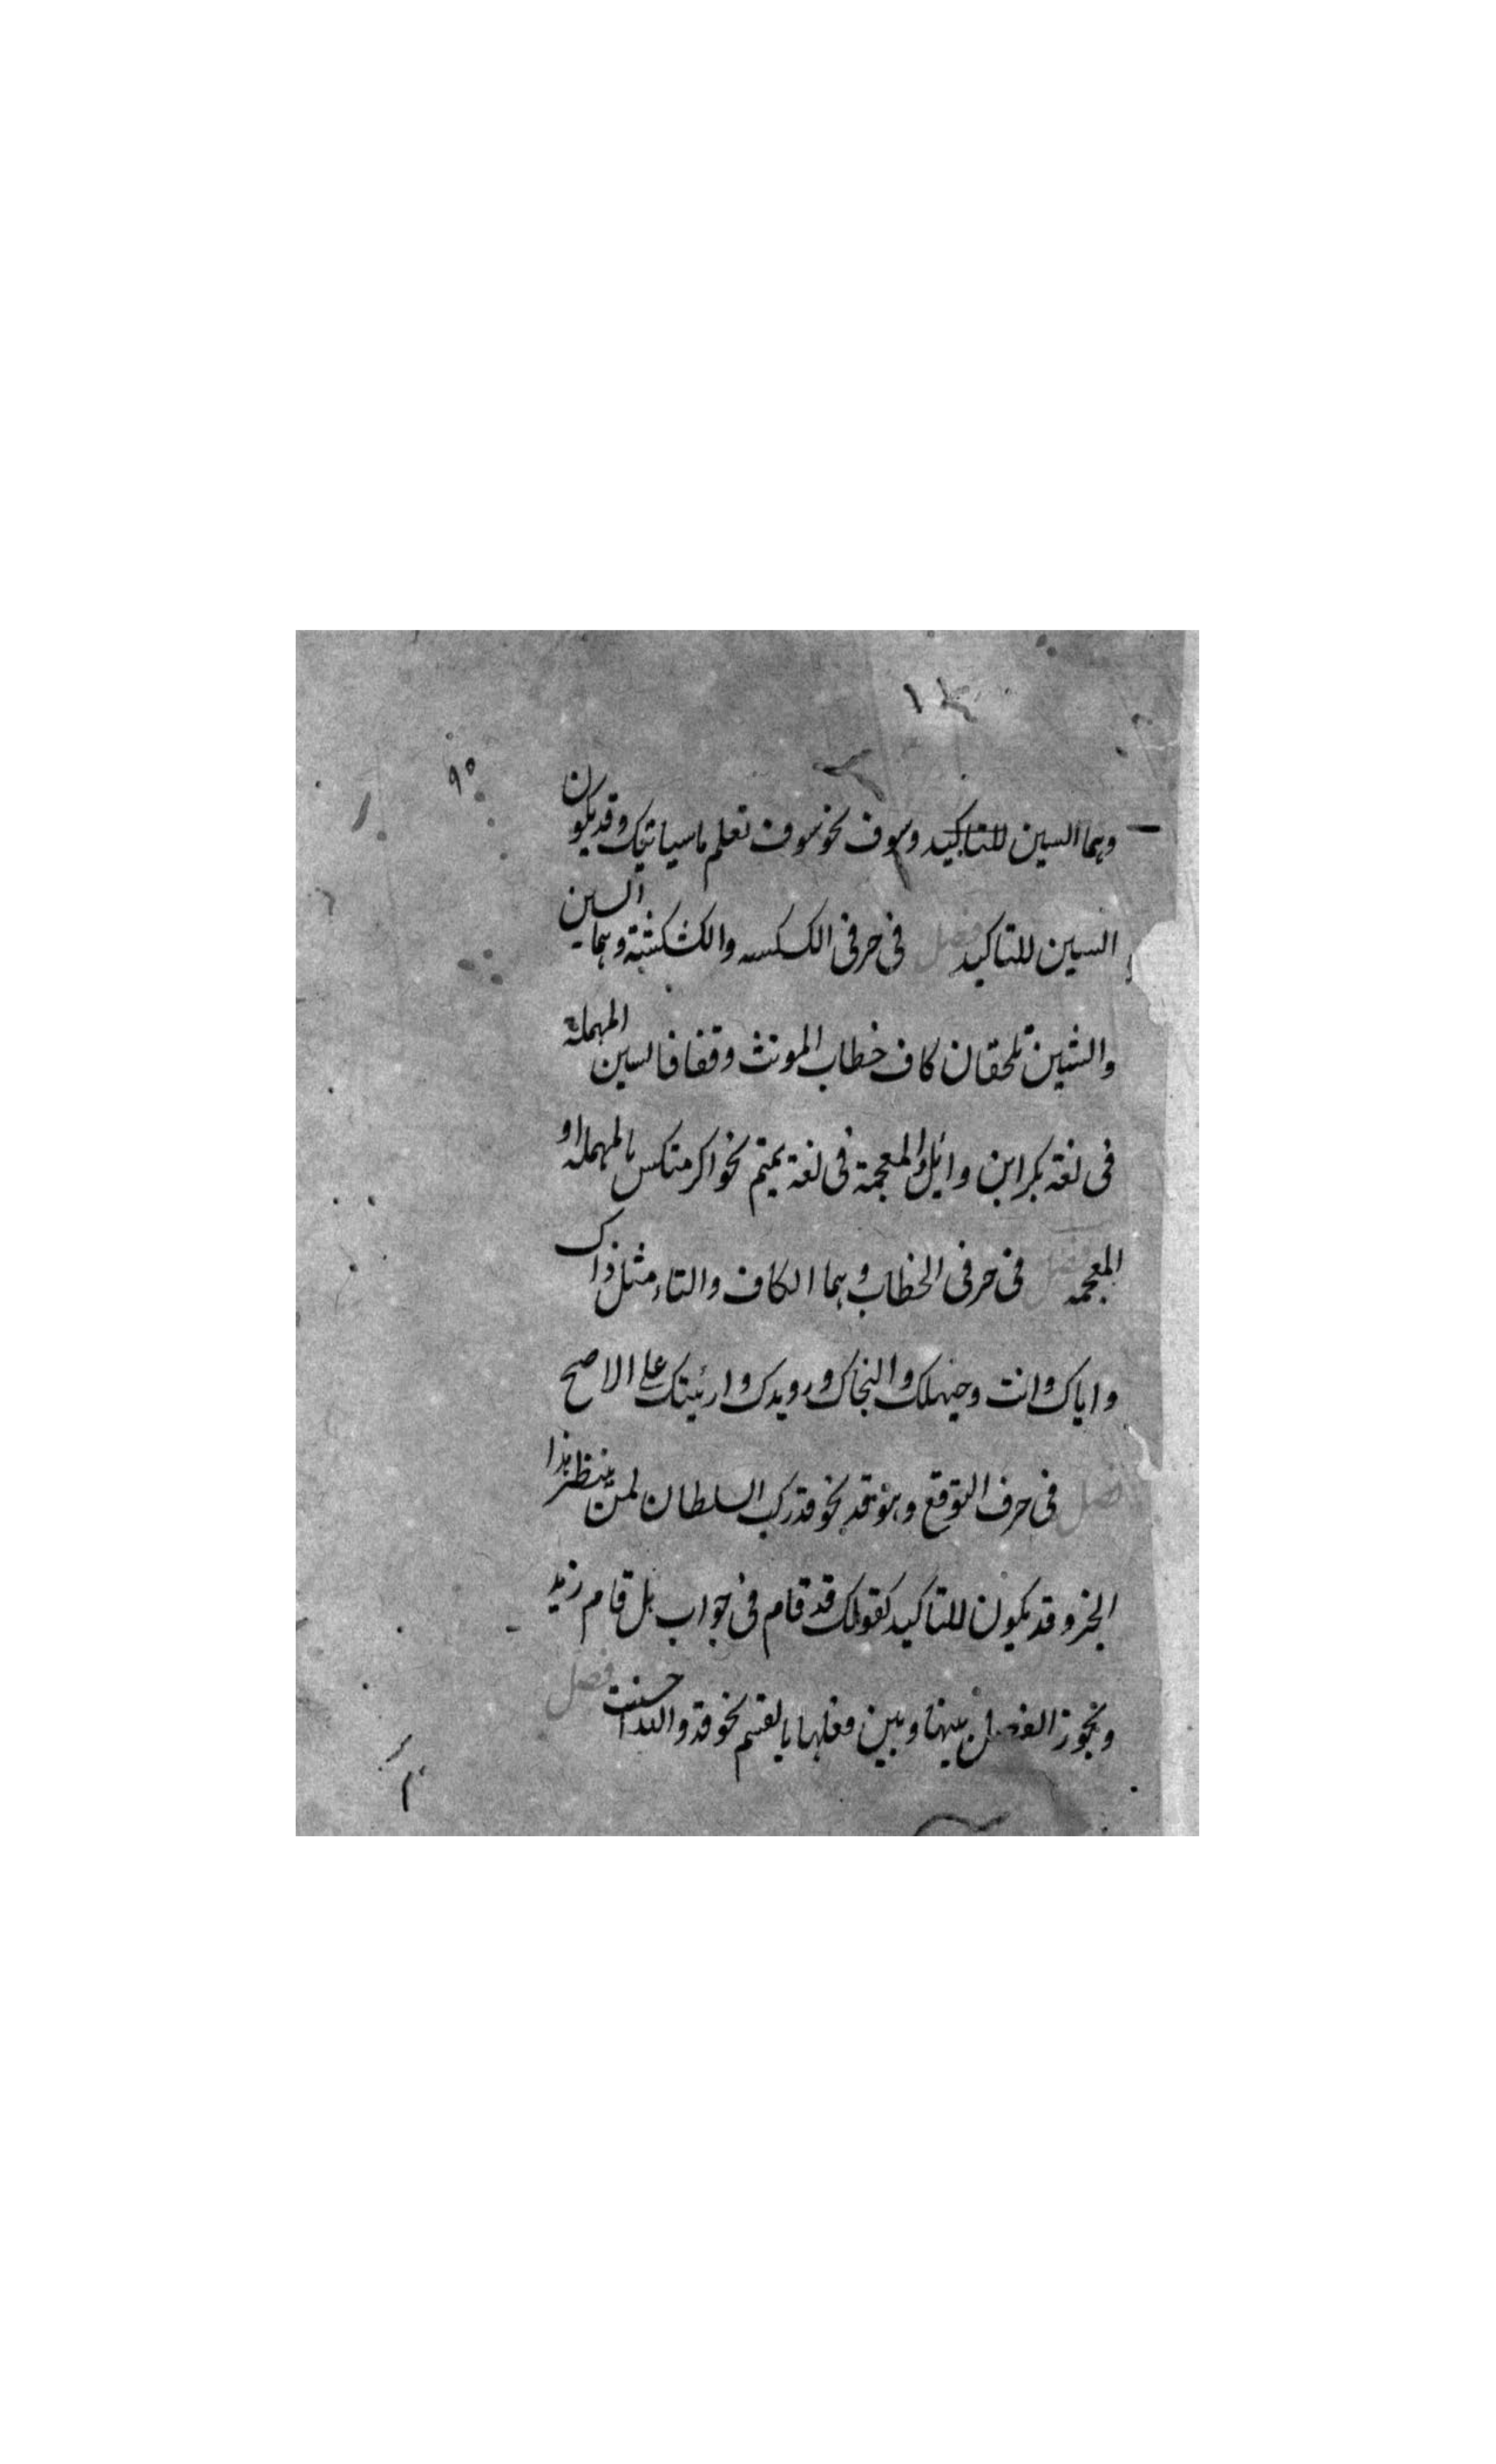 ٩٥
وهما السين للتاكيد وسوف نحو سوف تعلم ما سياتيك وقد يكون
السين للتاكيد فصل فى حرفى الكسكسه والكشكشة وهما السين
والشين تلحقان كاف خطاب المونث وقفا فالسين المهملة
فى لغة بكر ابن وائل والمعجمة فى لغة تميم نحو اكرمتكس بالمهملة او
المعجمه فصل فى حرفى الخطاب وهما الكاف والتاء مثل ذاك
واياك وانت وحيهلك والنجاك ورويدك وارئيتك على الاصح
فصل فى حرف التوقع وهو قد نحو قد ركب السلطان لمن ينتظر هذا
الخبر وقد يكون للتاكيد كقولك قد قام فى جواب هل قام زيد
ويجوز الفصل بينها وبين فعلها بالقسم نحو قد والله احسنت فصل